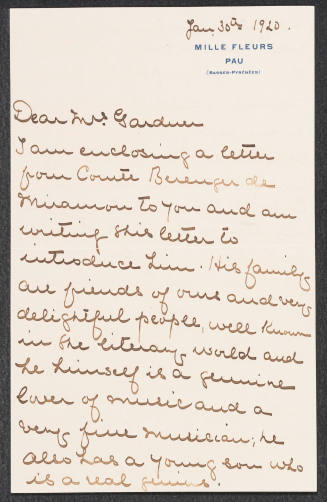 Jan. 30th 1920.
MILLE FLEURS
PAU
(BASSES-PYRÉNÉES)
Dear Mrs. Gardner
I am enclosing a letter
from Comte Berenger de
Miramon to you and am
writing this letter to
introduce him. His family
are friends of ours and very
delightful people, well known
in the literary world and
he himself is a genuine
lover of music and a
very fine musician; he
also has a young son who
is a real genius.